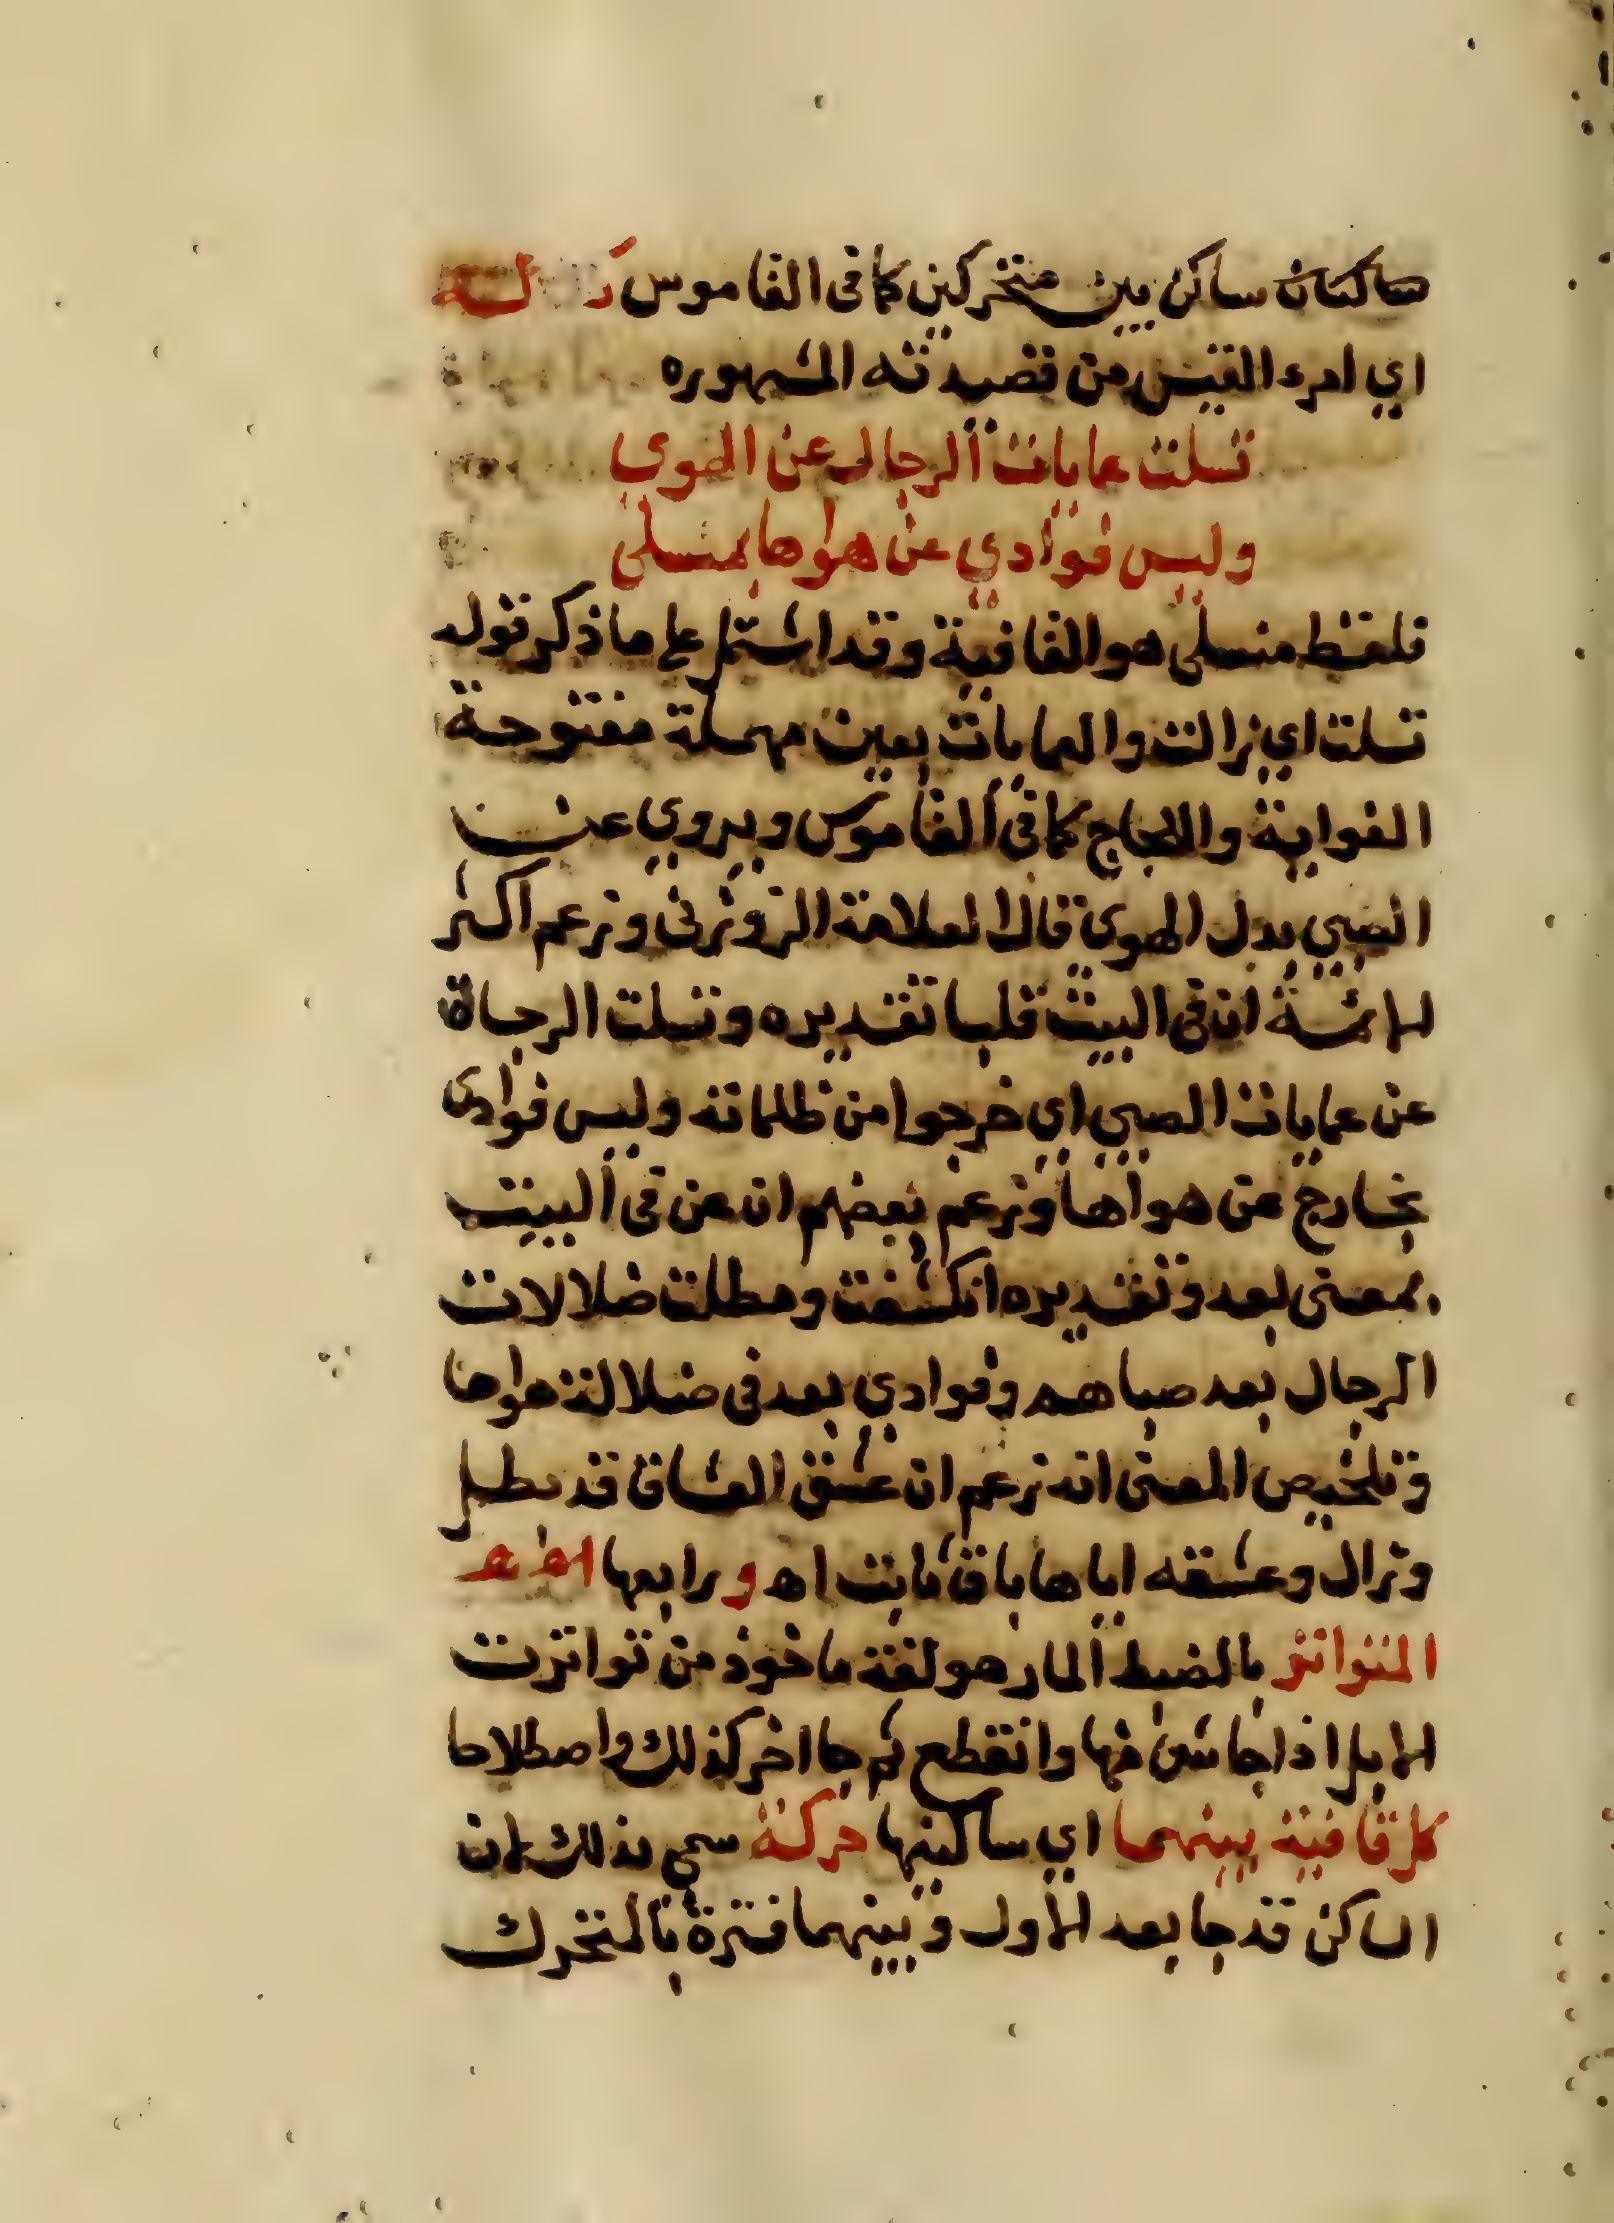 ساكنان ساكن بين متحركين كما في القاموس
اي امرء القيس من قصيدته المشهوره
تسلت عمايات الرجال عن الهوي
وليس فوادي عن هواها بمنسلي
فلفظ منسلي هو القافية وقد اشتمل علي ما ذكر قوله
تسلت اي زالت والعمايات بعين مهملة مفتوحة
الغواية واللجاج كما في القاموس ويروي عن
الصبي بدل الهوي قال العلامة الزوزني وزعم اكثر
الائمة ان في البيت قلبا تقديره وتسلت الرجاة
عن عمايات الصبي اي خرجوا من ظلماته وليس فوادي
بخارج عن هواها وزعم بعضهم ان عن في البيت
بمعني بعد وتقديره انكشفت وبطلت ضلالات
الرجال بعد صباهم وفوادي بعد في ضلالة هواها
وتلخيص المعني انه زعم ان عشق العشاق قد بطل
وزال وعشقه اياها باق ثابت اه ورابعها
المتواتر بالضبط المار هو لغة ماخوذ من تواترت
الابل اذا جا شئ منها وانقطع ثم جا اخر كذلك واصطلاحا
كل قافية بينهما اي ساكنيها حركة سمي بذلك لان
الساكن قد جا بعد الاول وبينهما فترة بالمتحرك